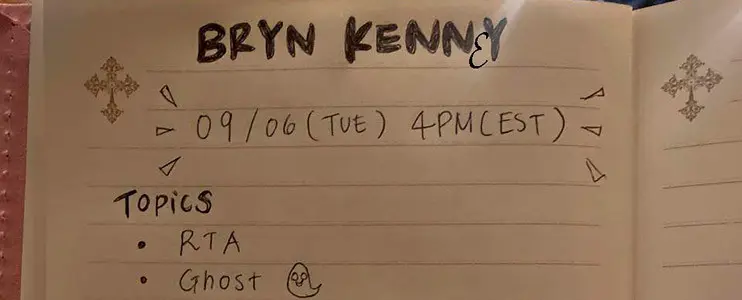 BRYN KENNEY
09/06 (TUE) 4PM (EST)
TOPICS
• RTA
• Ghost